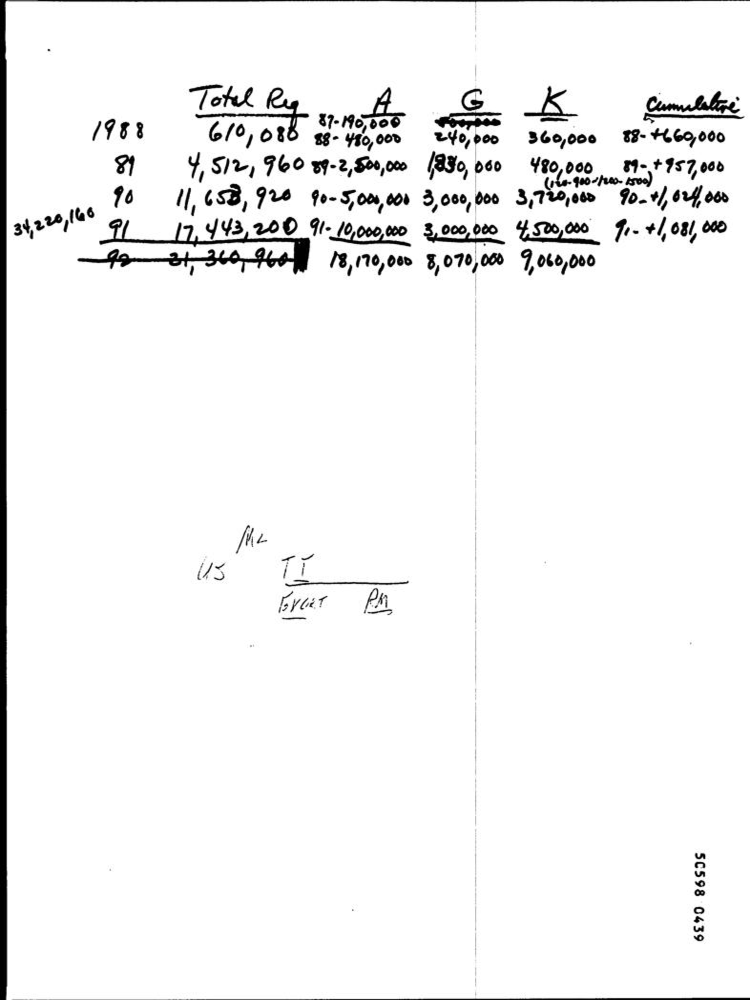 Total Req A G K Cumulative
87-190,000
1988 610,080 88-480,000 240,000 360,000 88-+660,000
89 4,512,960 89-2,500,000 1,830,000 480,000 89-+957,000
(120-900-1200-1500)
90 11,653,920 90-5,000,000 3,000,000 3,720,000 90-+1,024,000
34,220,160 91 17,443,200 91-10,000,000 3,000,000 4,500,000 91-+1,081,000
92 21,360,960 18,170,000 8,070,000 9,060,000
ML
US
PM
50598 0439